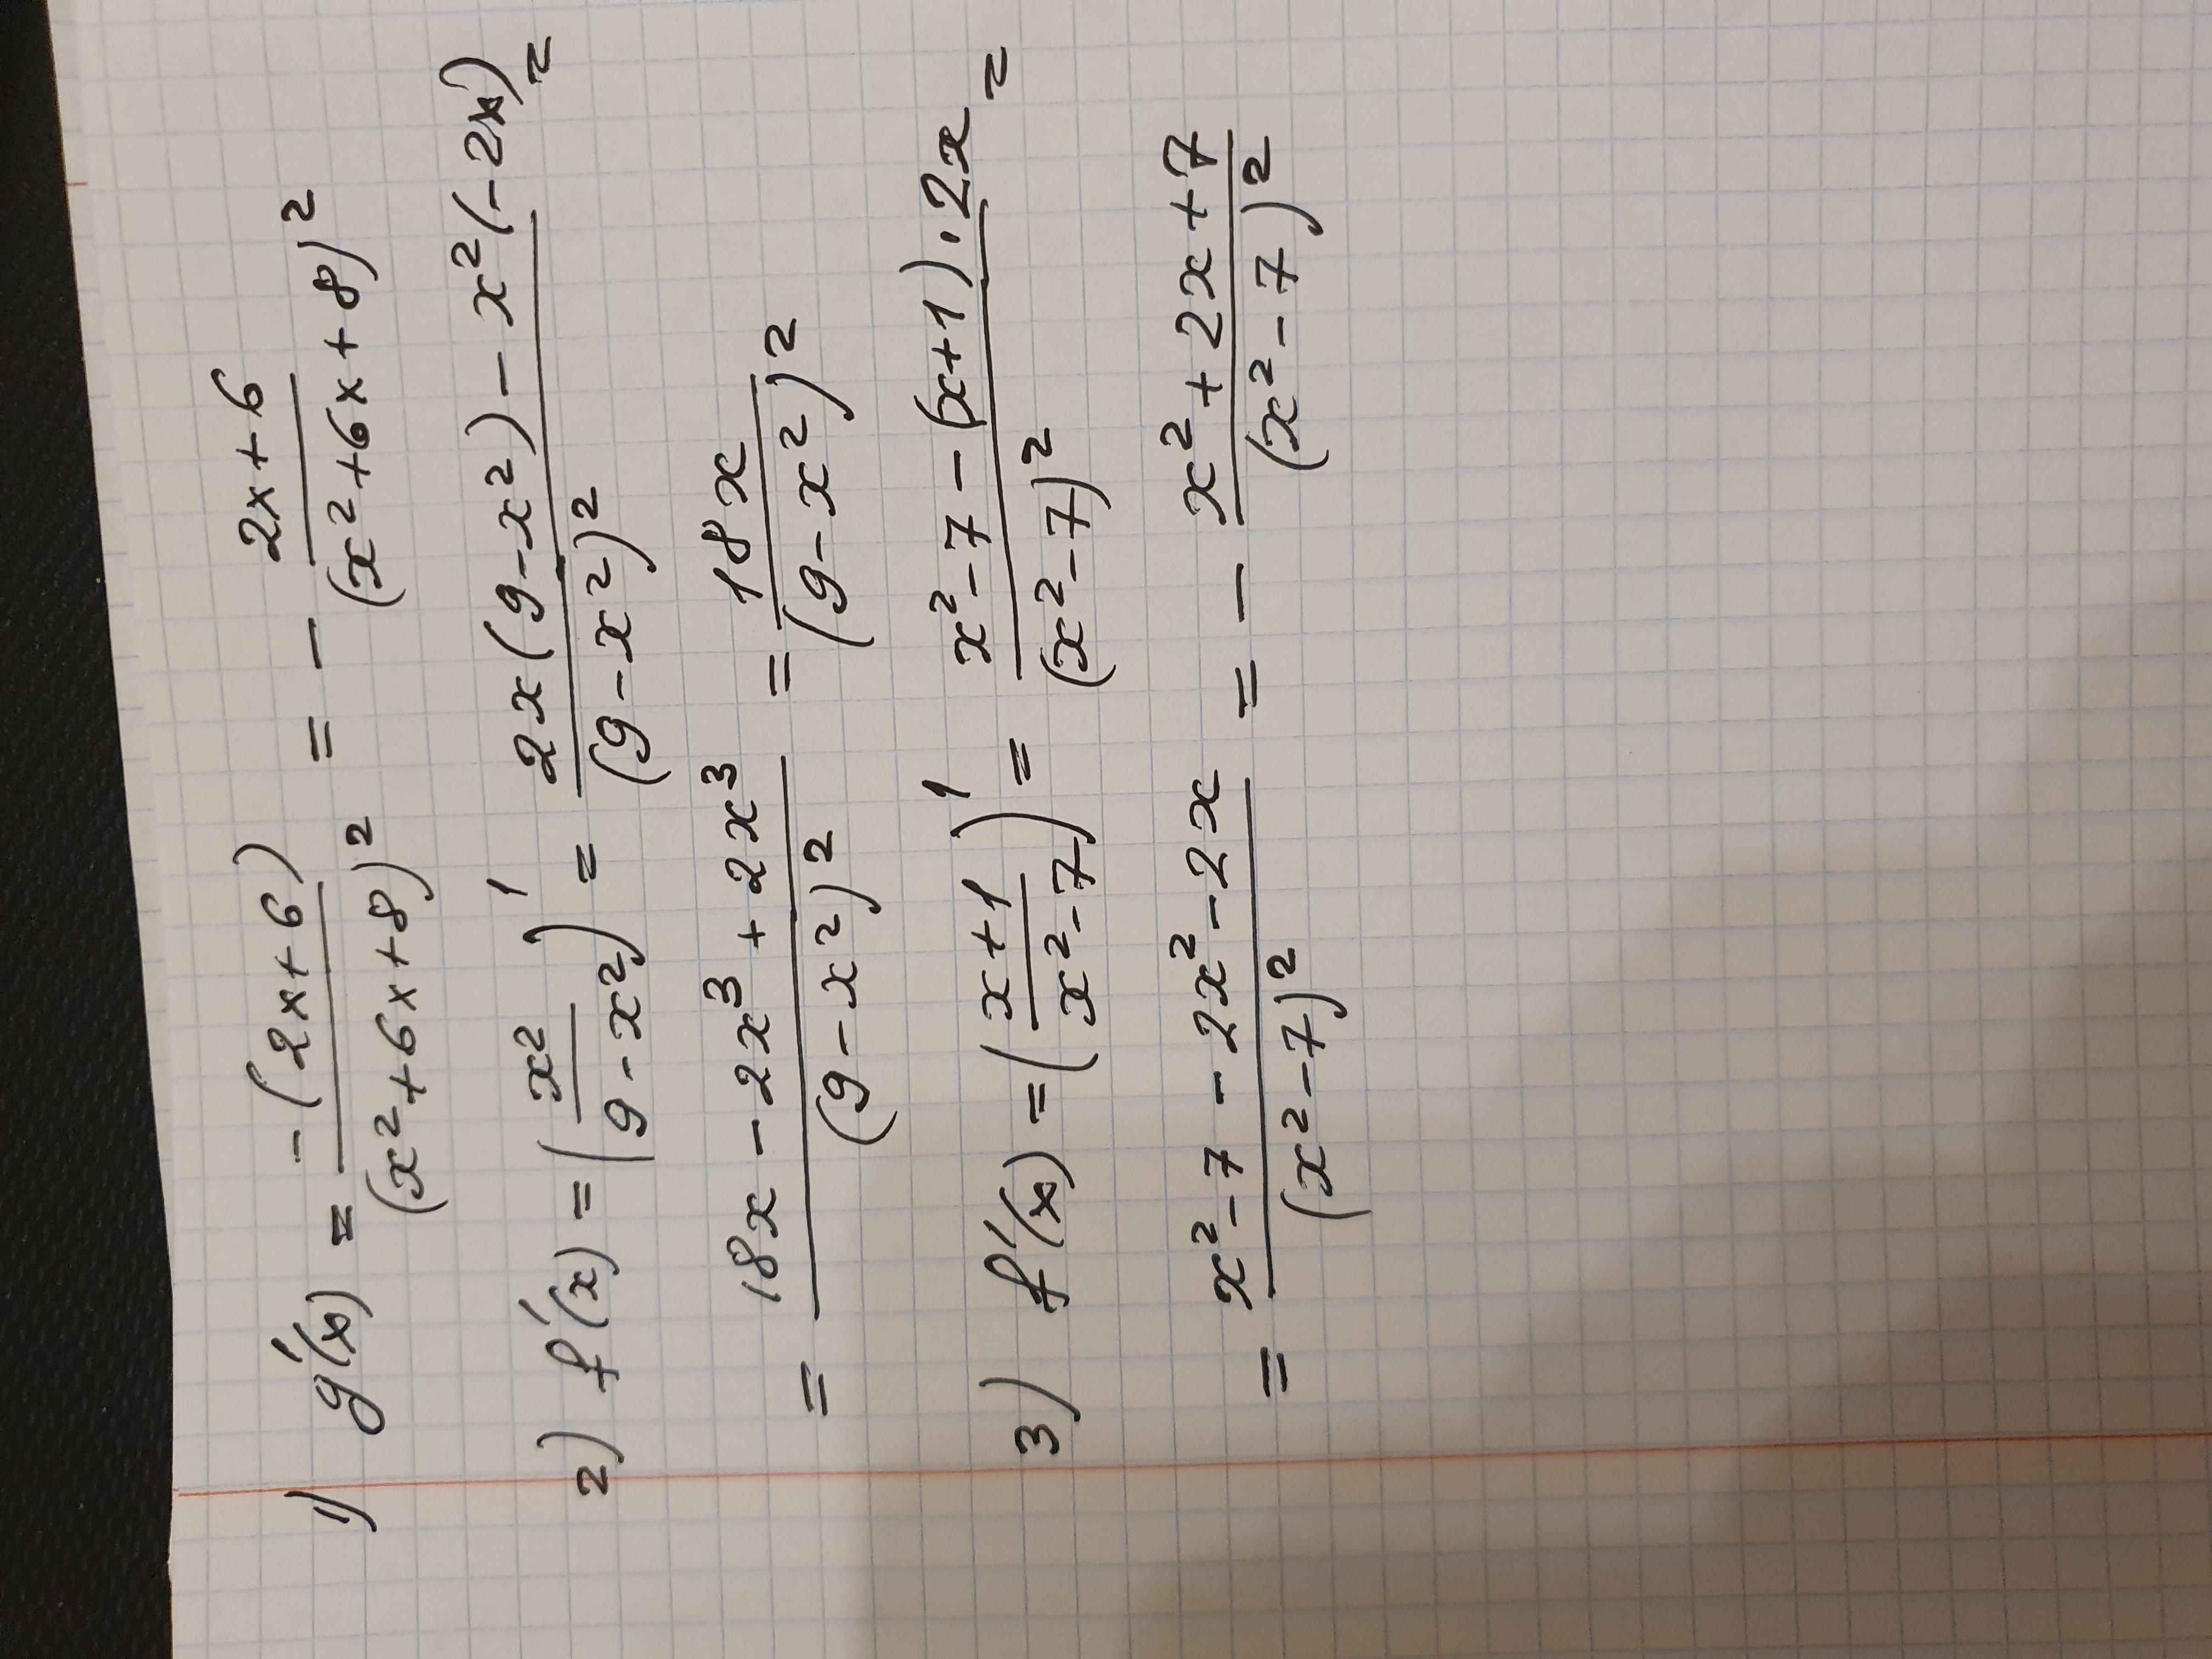 1) g'(x) = -(2x+6)/(x²+6x+8)² = - (2x+6)/(x²+6x+8)²
2) f'(x) = (x²/(9-x²))' = (2x(9-x²) - x²(-2x))/(9-x²)² =
= (18x - 2x³ + 2x³)/(9-x²)² = 18x/(9-x²)²
3) f'(x) = ((x+1)/(x²-7))' = (x²-7-(x+1)·2x)/(x²-7)² =
= (x²-7-2x²-2x)/(x²-7)² = - (x²+2x+7)/(x²-7)²